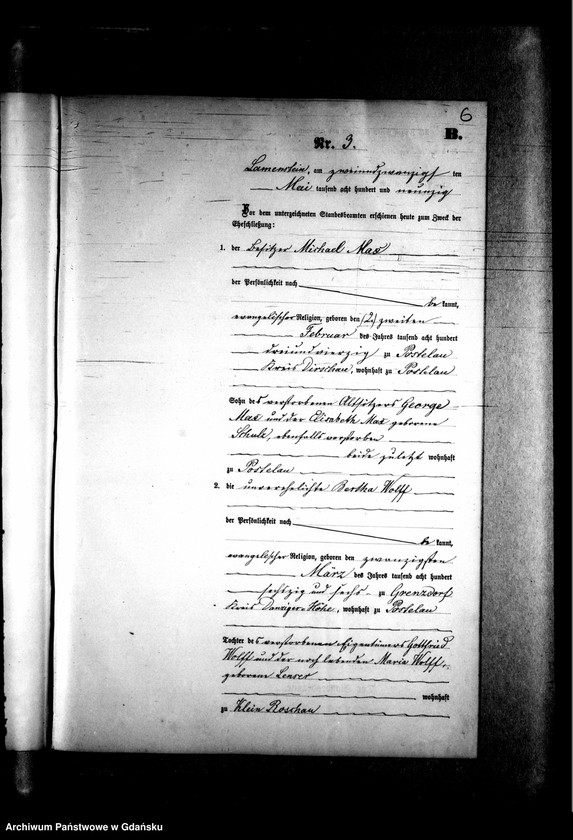 6
B.
Nr. 3.
Lamenstein, am zweiundzwanzigsten
Mai tausend acht hundert und neunzig
Vor dem unterzeichneten Standesbeamten erschienen heute zum Zweck der
Eheschließung:
1. der Besitzer Michael Max
der Persönlichkeit nach
be kannt,
evangelischer Religion, geboren den (2) zweiten
Februar des Jahres tausend acht hundert
dreiundvierzig zu Postelau
Kreis Dirschau, wohnhaft zu Postelau
Sohn des verstorbenen Altsitzers George
Max und der Elisabeth Max geborene
Schulz, ebenfalls verstorben
beide zuletzt wohnhaft
zu Postelau
2. die unverehelichte Bertha Wolff
der Persönlichkeit nach
be kannt,
evangelischer Religion, geboren den zwanzigsten
März des Jahres tausend acht hundert
sechszig und sechs zu Grenzdorf
Kreis Danziger-Höhe, wohnhaft zu Postelau
Tochter des verstorbenen Eigentümers Gottfried
Wolff und der noch lebenden Maria Wolff
geborene
wohnhaft
zu Klein Roschau
Archiwum Państwowe w Gdańsku